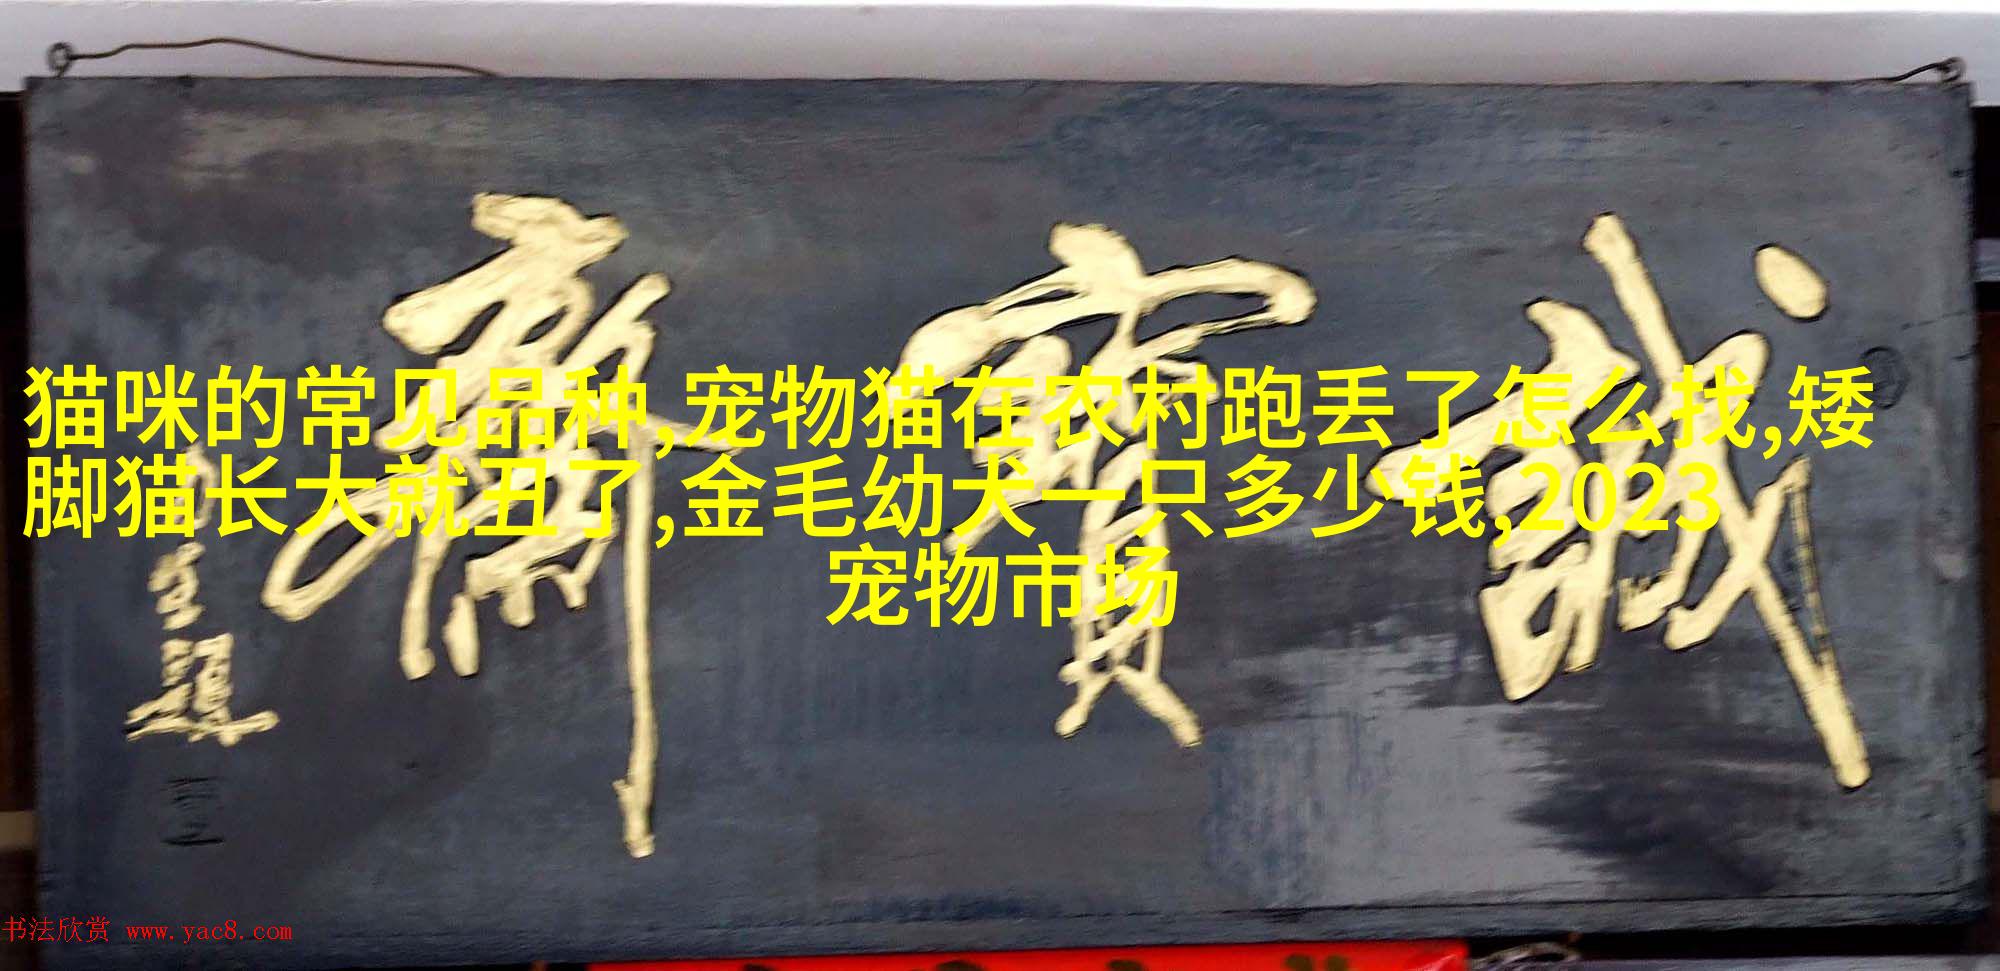 誠寶齋
題
猫咪的常见品种,宠物猫在农村跑丢了怎么找,矮
脚猫长大就丑了,金毛幼犬一只多少钱,2023
宠物市场
书法欣赏 www.yac8.com